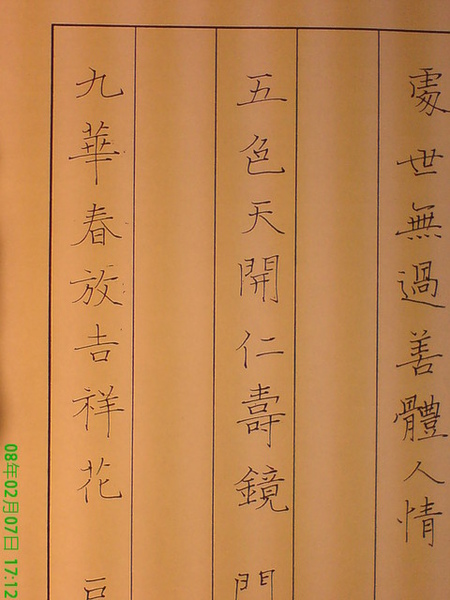 處世無過善體人情
五色天開仁壽鏡 門
九華春放吉祥花
08年02月07日 17:12